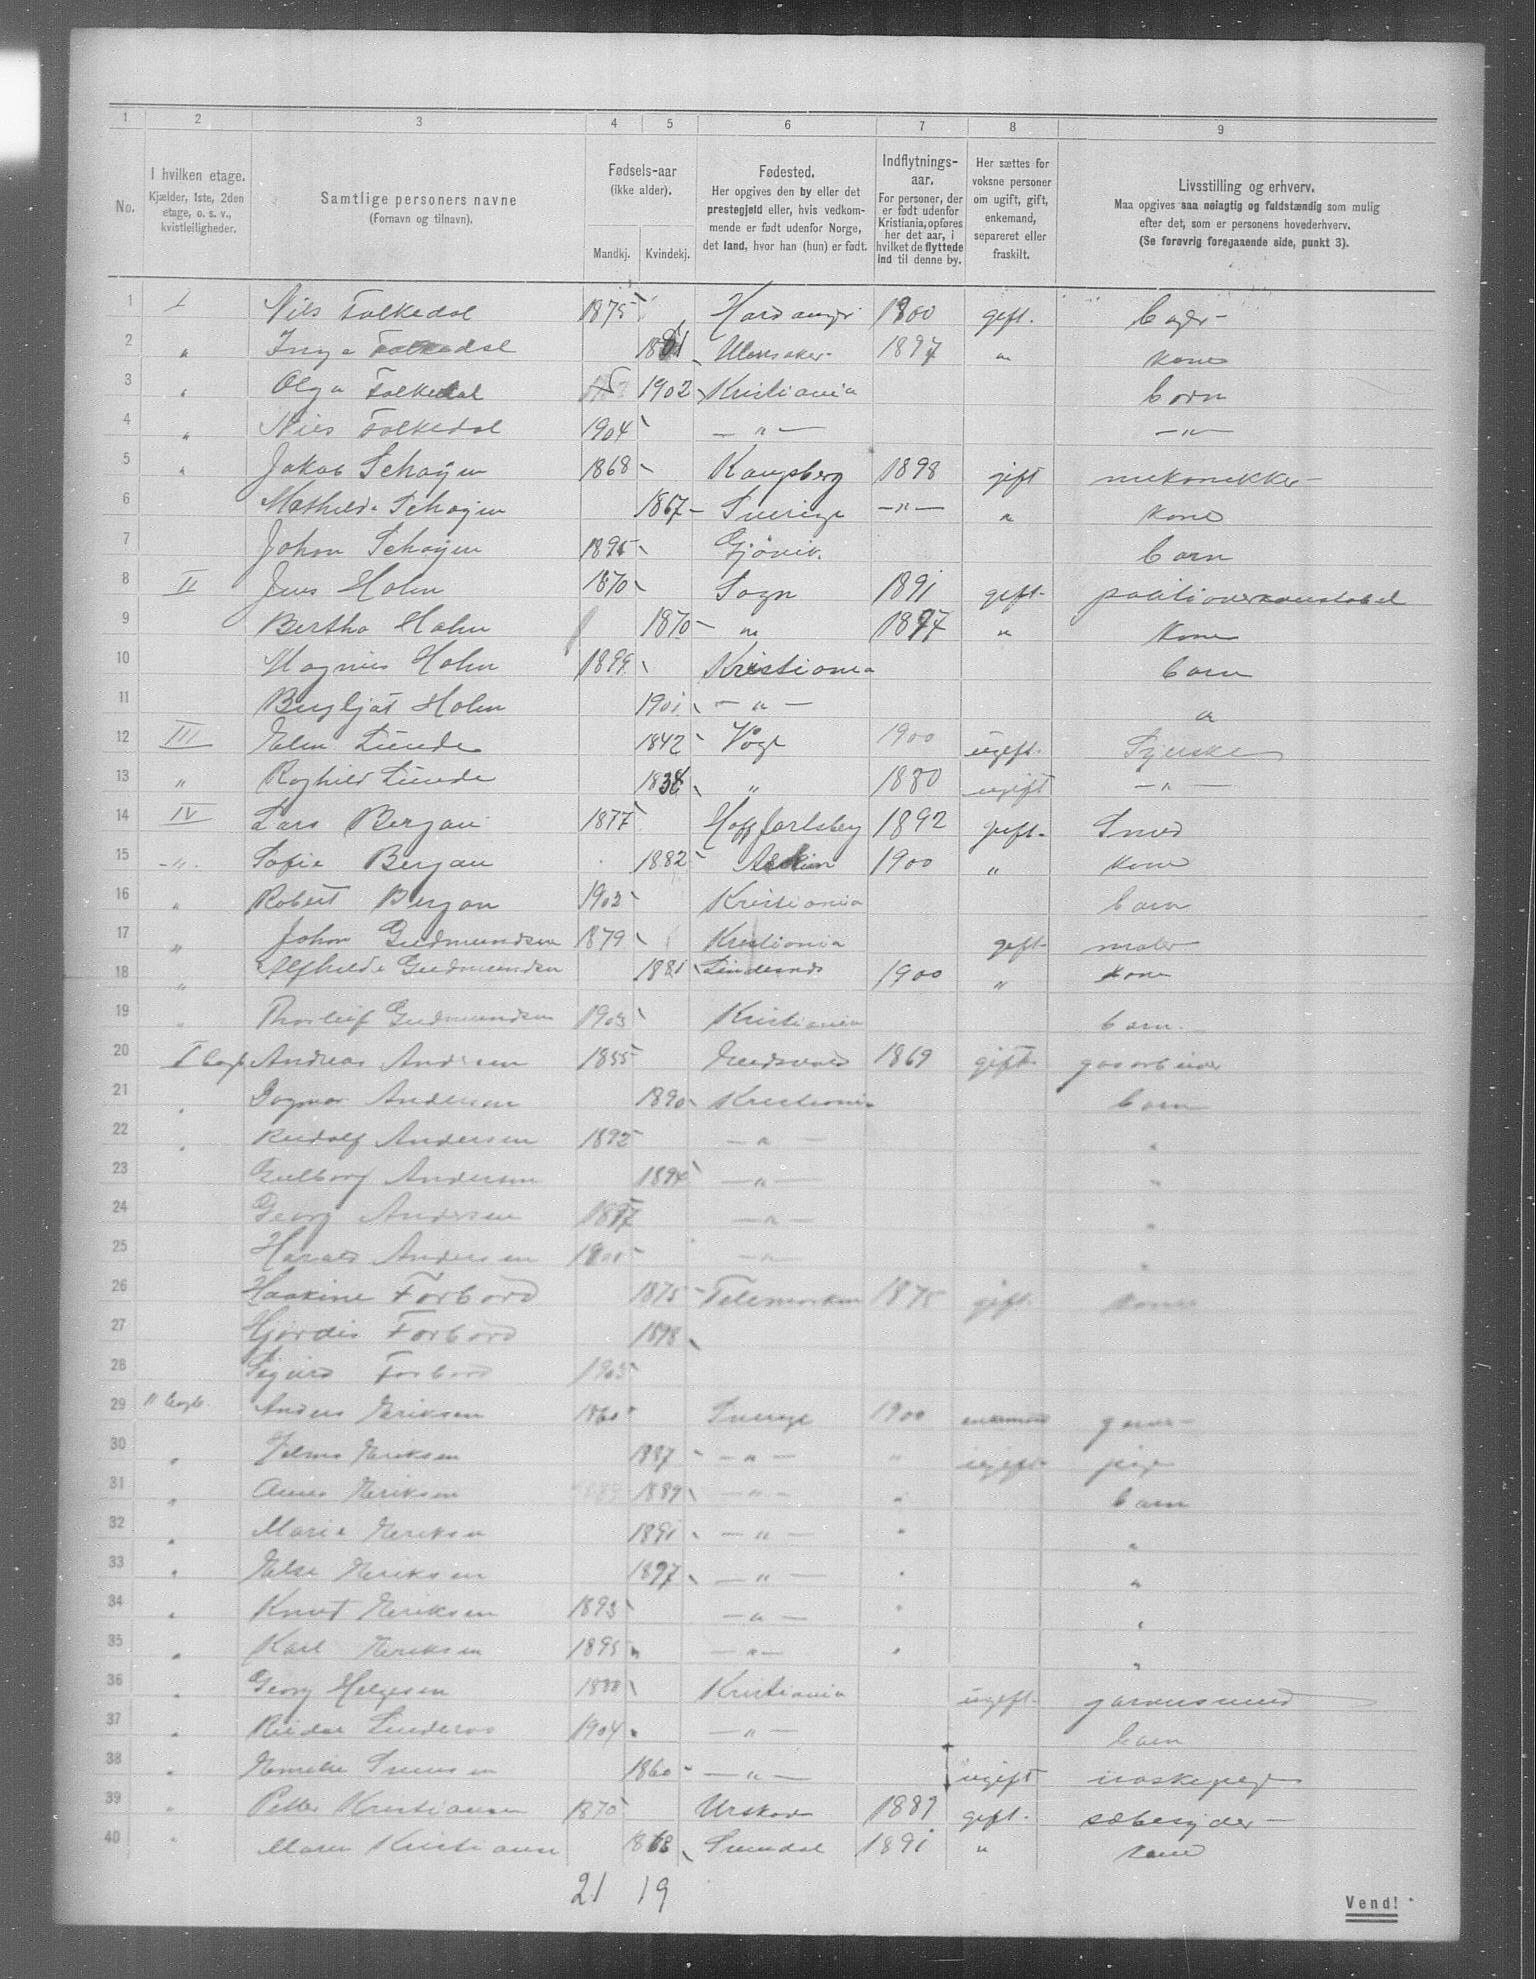 1 2 3 4 5 6 7 8 9
No. I hvilken etage. Kjælder, 1ste, 2den etage, o. s. v., kvistleiligheder. Samtlige personers navne (Fornavn og tilnavn). Fødsels-aar (ikke alder). Mandkj. Kvindekj. Fødested. Her opgives den by eller det prestegjeld eller, hvis vedkommende er født udenfor Norge, det land, hvor han (hun) er født. Indflytnings-aar. For personer, der er født udenfor Kristiania, opføres her det aar, i hvilket de flyttede ind til denne by. Her sættes for voksne personer om ugift, gift, enkemand, separeret eller fraskilt. Livsstilling og erhverv. Maa opgives saa nøiagtig og fuldstændig som mulig efter det, som er personens hovederhverv. (Se forøvrig foregaaende side, punkt 3).
1 I Nils Folkedal 1875 Hardanger 1900 gift. bager
2 " Inga Folkedal 1881 Ullensaker 1897 " kone
3 " Olga Folkedal 1902 Kristiania barn
4 " Nils Folkedal 1904 — " — — " —
5 " Jakob Schøyen 1868 Kongsberg 1898 gift mekanikker
6 Mathilde Schøyen 1867 Sverige — " — " kone
7 Johan Schøyen 1895 Gjøvik. barn
8 II Jens Holm 1870 Sogn 1891 gift politioverkonstabel
9 Bertha Holm 1870 " 1897 " kone
10 Magnus Holm 1899 Kristiania barn
11 Bergljot Holm 1901 — " — "
12 III Elen Lunde 1842 Vaage 1900 ugift. Syerske
13 " Raghild Lunde 1838 " 1880 ugift — " —
14 IV Lars Bergan 1877 Hoff Jarlsberg 1892 gift. Smed
15 — " — Sofie Bergan 1882 Askim 1900 " kone
16 " Robert Bergan 1903 Kristiania barn
17 " Johan Gudmundsen 1879 Kristiania gift maler
18 " Alfhilde Gudmundsen 1881 Lindesnes 1900 " kone
19 " Thorleif Gudmundsen 1903 Kristiania barn.
20 I bagb Andreas Andersen 1855 Eidsvold 1869 gift gasarbeider
21 " Dagmar Andersen 1890 Kristiania barn
22 " Rudolf Andersen 1892 — " — "
23 Gulborg Andersen 1894 — " — "
24 Georg Andersen 1897 — " — "
25 Harald Andersen 1901 — " — "
26 Haakine Forbord 1875 Telemarken 1875 gift. kone
27 Hjørdis Forbord 1898
28 Sigurd Forbord 1903
29 II bagb. Anders Eriksen 1860 Sverige 1900 enkemand garver
30 " Vilma Eriksen 1887 — " — " ugift pige
31 " Anna Eriksen 1889 — " — " barn
32 " Marie Eriksen 1891 — " — " "
33 " Else Eriksen 1897 — " — " "
34 " Knut Eriksen 1893 — " — " "
35 " Karl Eriksen 1895 — " — " "
36 " Georg Helgesen 1888 Kristiania ugift garversvend
37 " Reidar 1904 — " — barn
38 " 1860 — " — ugift vaskepige
39 " Petter Kristiansen 1870 Urskog 1887 gift. sæbesyder
40 " Maren Kristiansen 1868 Surendal 1891 " kone
21 19
Vend!